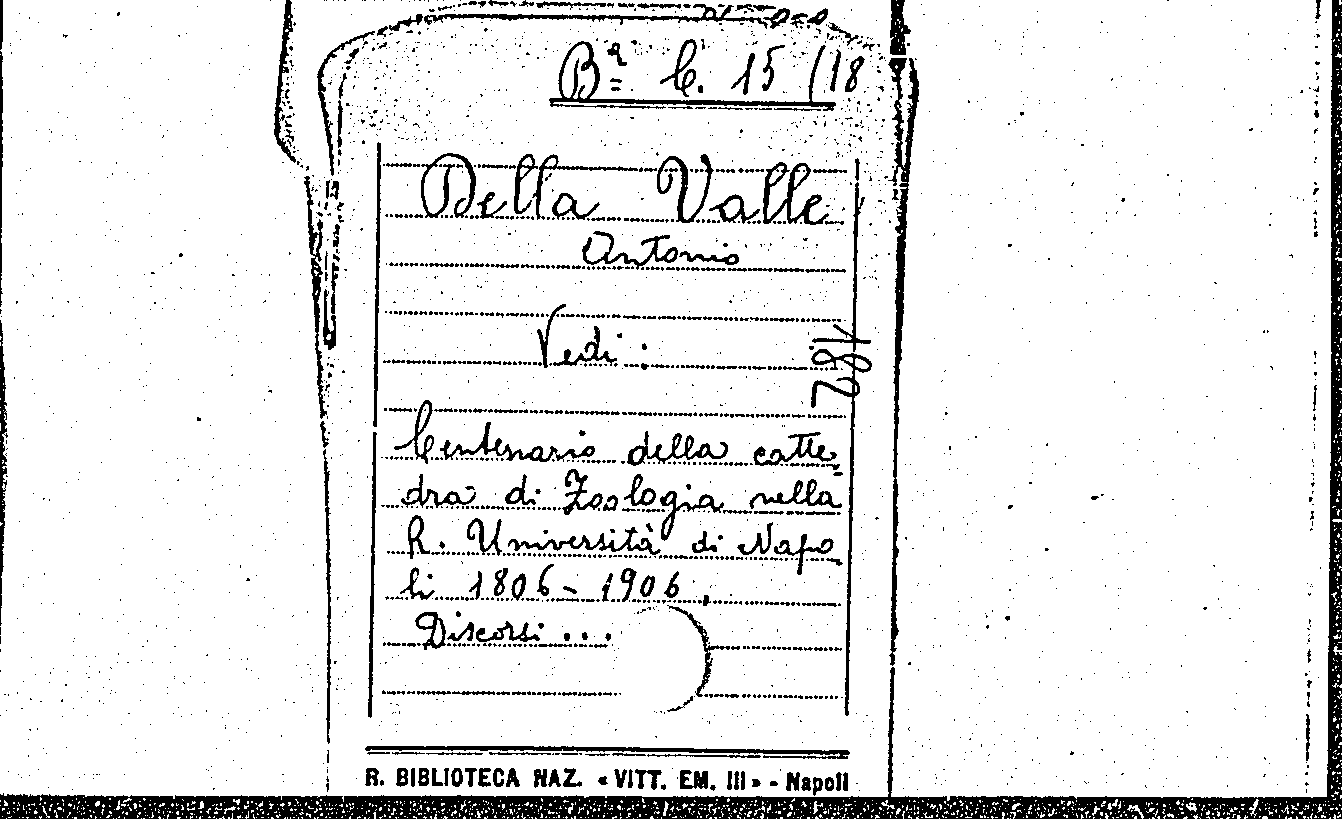 Bª C. 15 (18
Della Valle
Antonio
Vedi :
182
Centenario della catte=
dra di Zoologia nella
R. Università di Napo
li 1806 - 1906.
Discorsi ...
R. BIBLIOTECA NAZ. « VITT. EM. III » - Napoli